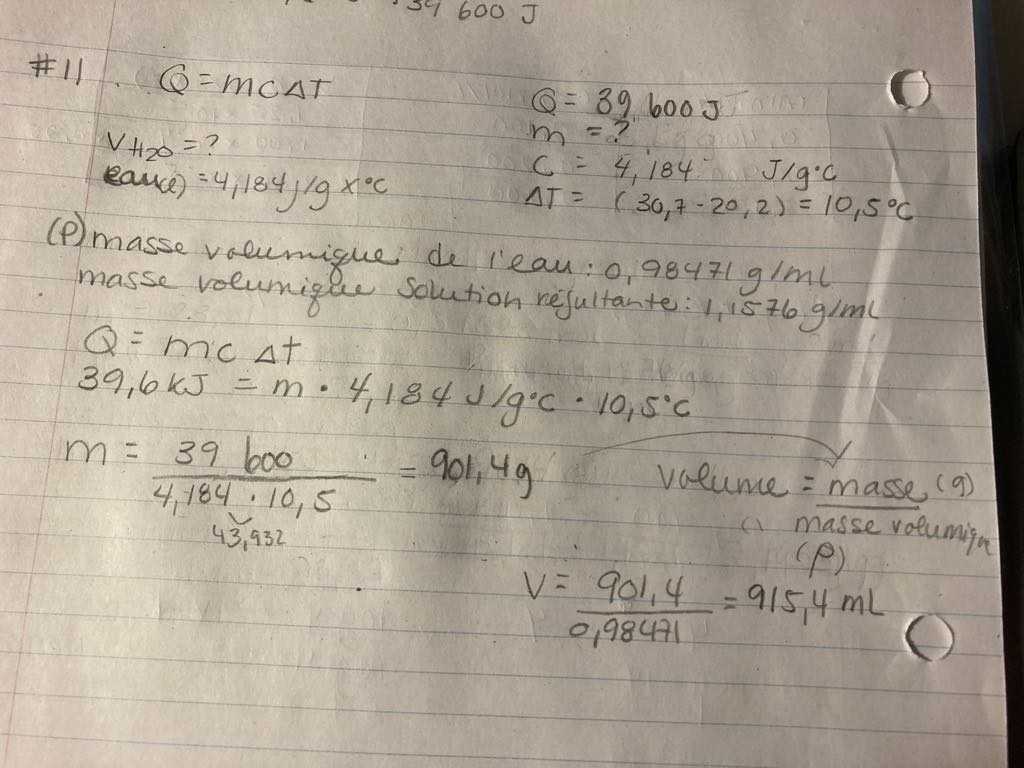 39 600 J
#11 Q = mcΔT
V H2O = ?
eau(c) = 4,184 J/g x °C
Q = 39 600 J
m = ?
C = 4,184 J/g°C
ΔT = (30,7 - 20,2) = 10,5°C
(ρ) masse volumique de l'eau : 0,98471 g/ml
masse volumique solution résultante : 1,1576 g/mL
Q = mcΔt
39,6 kJ = m • 4,184 J/g°C • 10,5°C
m = 39 600 = 901,4g
4,184 • 10,5
43,932
volume = masse (g)
masse volumiqu
(ρ)
V = 901,4 = 915,4 mL
0,98471